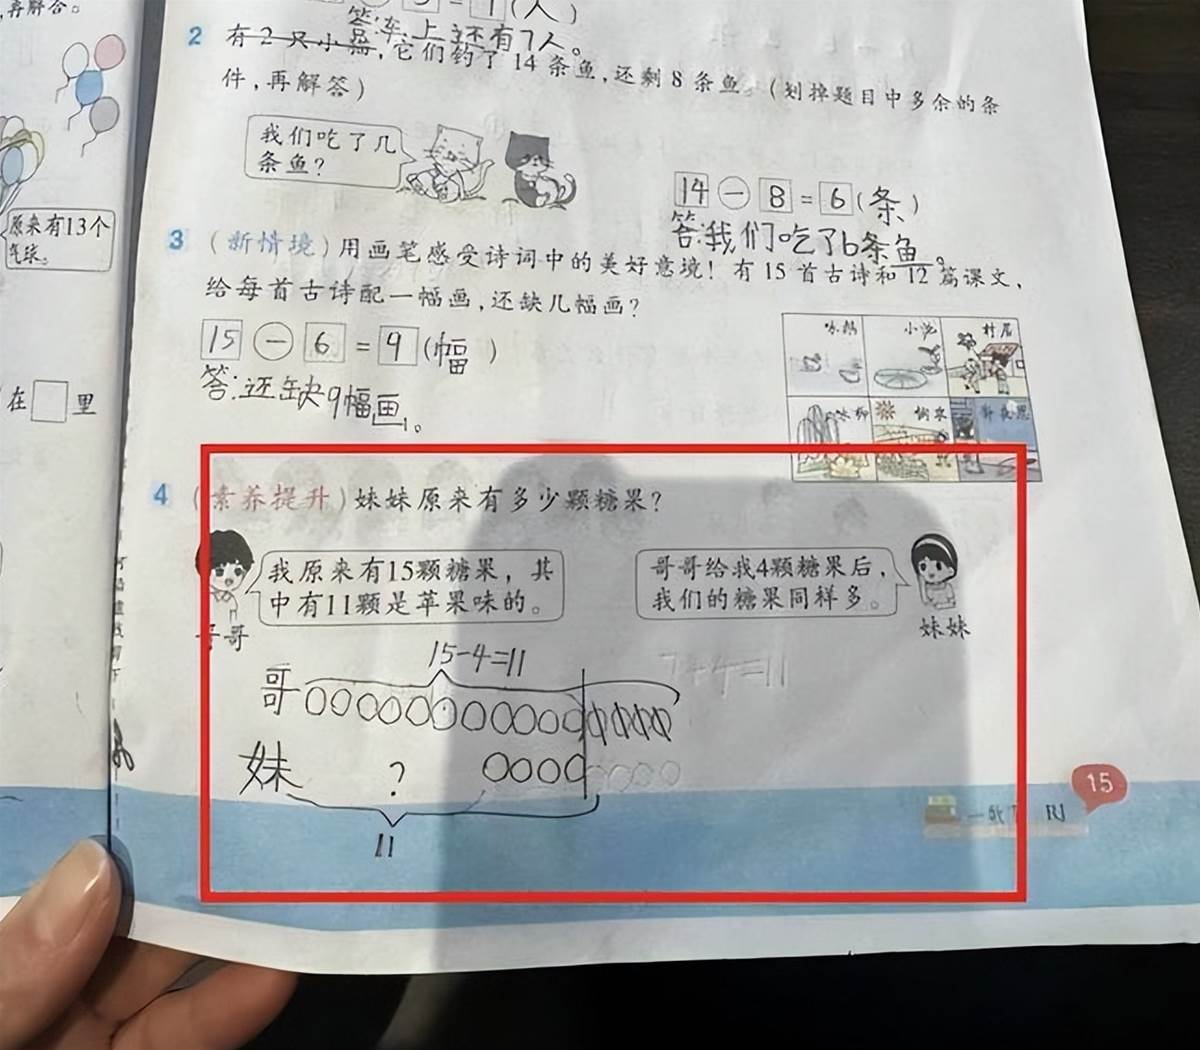 再解答。
答:车上还有7人。
2 有2只小猫,它们钓了14条鱼,还剩8条鱼。(划掉题目中多余的条
件,再解答)
我们吃了几
条鱼?
14 - 8 = 6 (条)
答:我们吃了6条鱼。
原来有13个
气球。
3 (新情境)用画笔感受诗词中的美好意境!有15首古诗和12篇课文,
给每首古诗配一幅画,还缺几幅画?
15 - 6 = 9 (幅)
答:还缺9幅画。
咏鹅 小池 村居
咏柳
在 里
4 (素养提升)妹妹原来有多少颗糖果?
我原来有15颗糖果,其
中有11颗是苹果味的。
哥哥给我4颗糖果后,
我们的糖果同样多。
哥哥
妹妹
15-4=11
7+4=11
哥
妹 ?
11
15
RJ